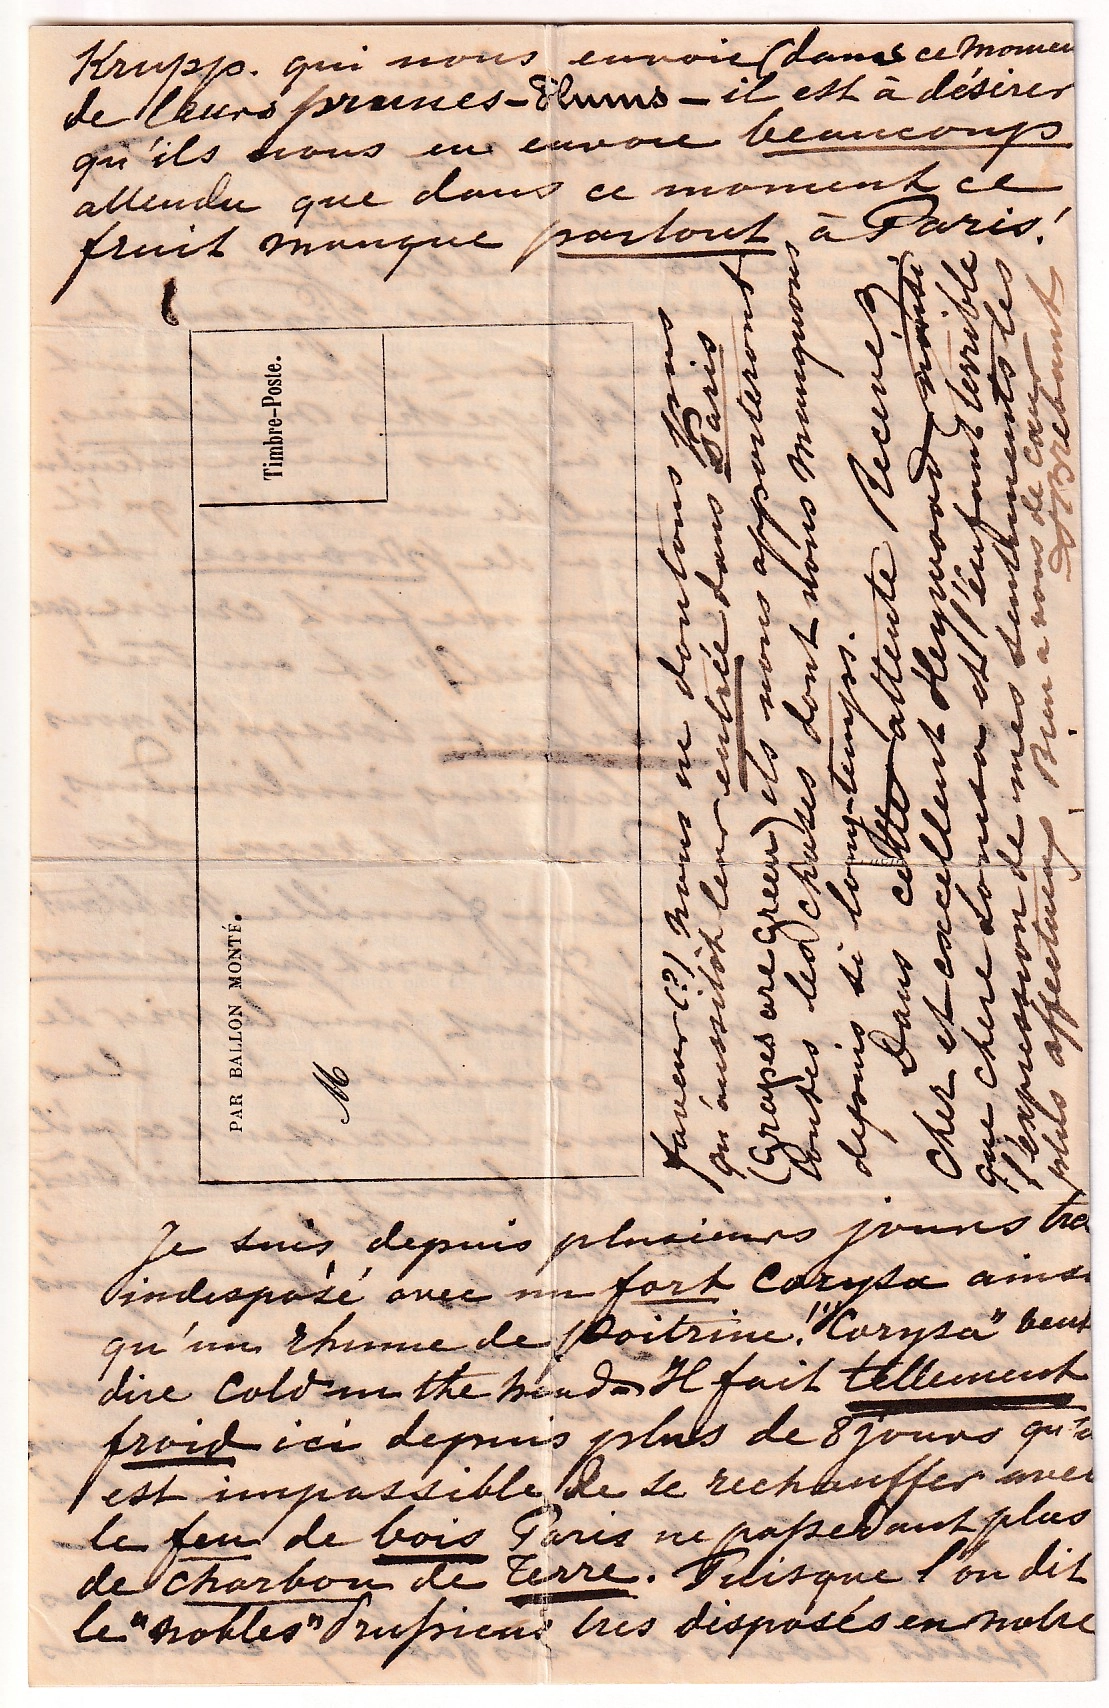 Krupp. qui nous envoie (dans ce momen
de leurs prunes - Plums - il est à désirer
qu'ils nous en envoie beaucoup
attendu que dans ce moment ce
fruit manque partout à Paris!
Timbre-Poste.
PAR BALLON MONTÉ.
M
Je suis depuis plusieurs jours tre
indisposé avec un fort corysa ainsi
qu'un rhume de poitrine! "Corysa" veut
dire cold in the head - Il fait tellement
froid ici depuis plus de 8 jours qu'il
est impossible de se rechauffer avec
le feu de bois Paris ne possedant plus
de charbon de Terre. Puisque l'on dit
le "nobles" Prussiens tres disposés en notre
faveur (?) nous ne doutons pas
qu'aussitôt leur entrée dans Paris
(Grapes are Green) ils nous apporteront
toutes les choses dont nous manquons
depuis si longtemps.
Dans cette attente Recevez
cher et excellent Heywood, ainsi
que chere Louisa et l'enfant terrible
l'expression de mes sentiments les
plus affectueux Bien a vous de coeur
Brebant